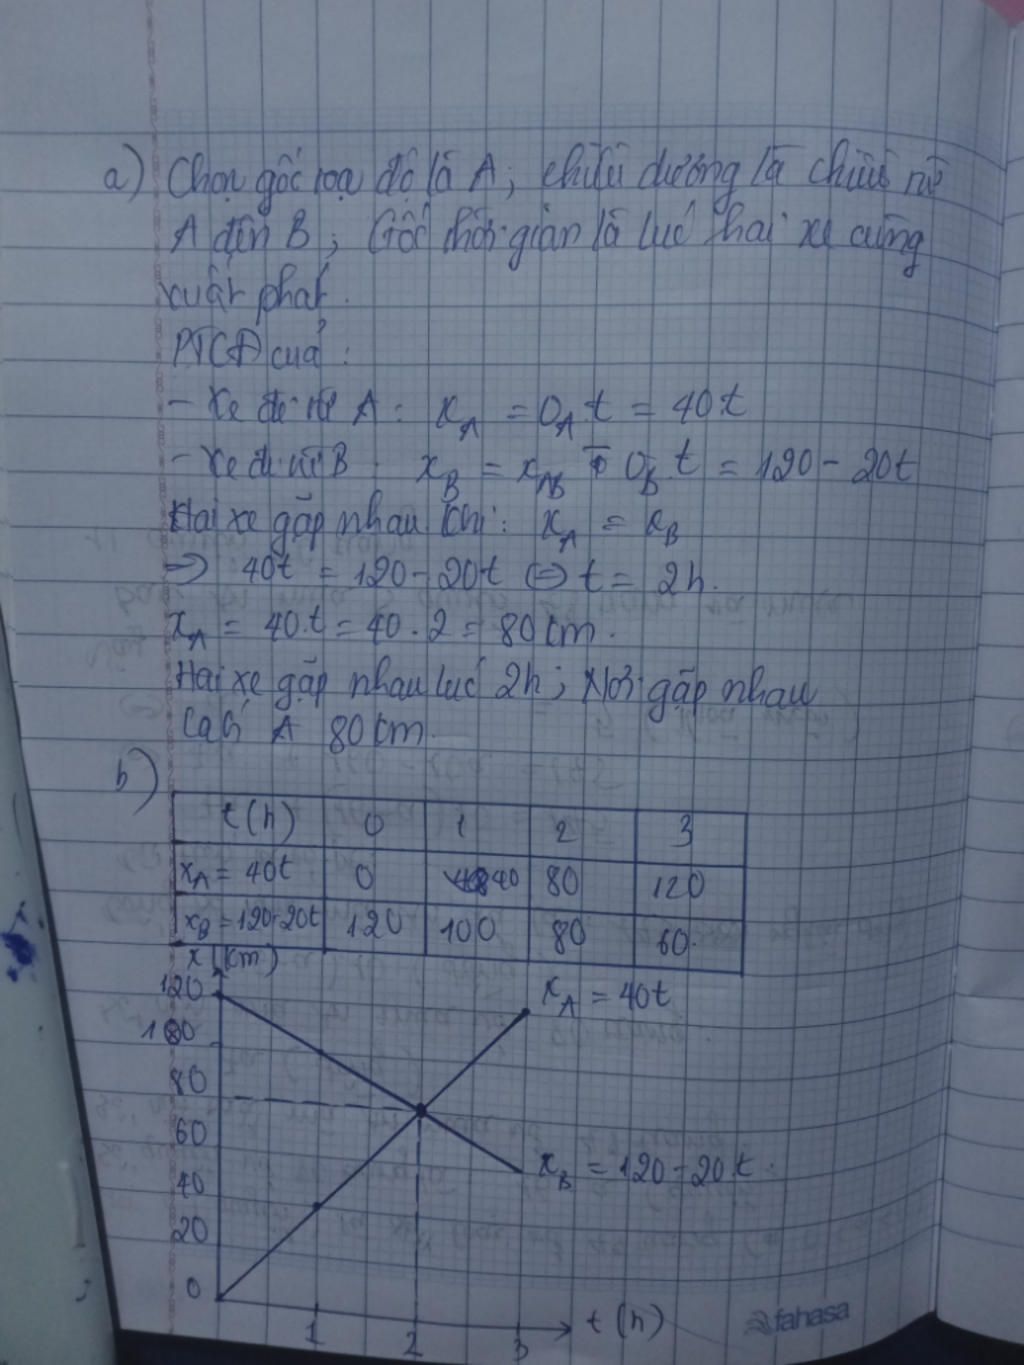 a) Chọn gốc toạ độ là A; chiều dương là chiều từ
A đến B; Gốc thời gian là lúc hai xe cùng
xuất phát.
PTCĐ của:
- Xe đi từ A: x_A = v_A.t = 40t
- Xe đi từ B: x_B = x_AB - v_B.t = 120 - 20t
Hai xe gặp nhau khi: x_A = x_B
=> 40t = 120 - 20t <=> t = 2h.
x_A = 40.t = 40.2 = 80km.
Hai xe gặp nhau lúc 2h; Nơi gặp nhau
cách A 80km.
b)
t(h) 0 1 2 3
x_A = 40t 0 40 80 120
x_B = 120-20t 120 100 80 60.
x (km)
120
x_A = 40t
100
80
60
x_B = 120 - 20t.
40
20
0
1 2 3 t (h)
fahasa